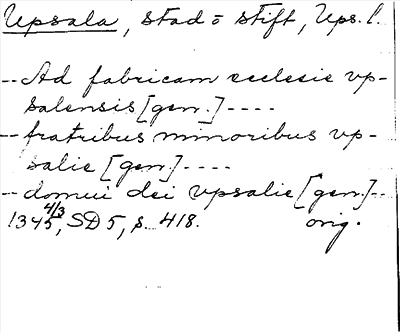 Upsala, stad o stift, Ups. l.
-- Ad fabricam ecclesie vp-
salensis [gen.] ----
-- fratribus minoribus vp-
salie [gen.] ----
-- domui dei vpsalie [gen.] --
1345 4/3, SD 5, s. 418. orig.